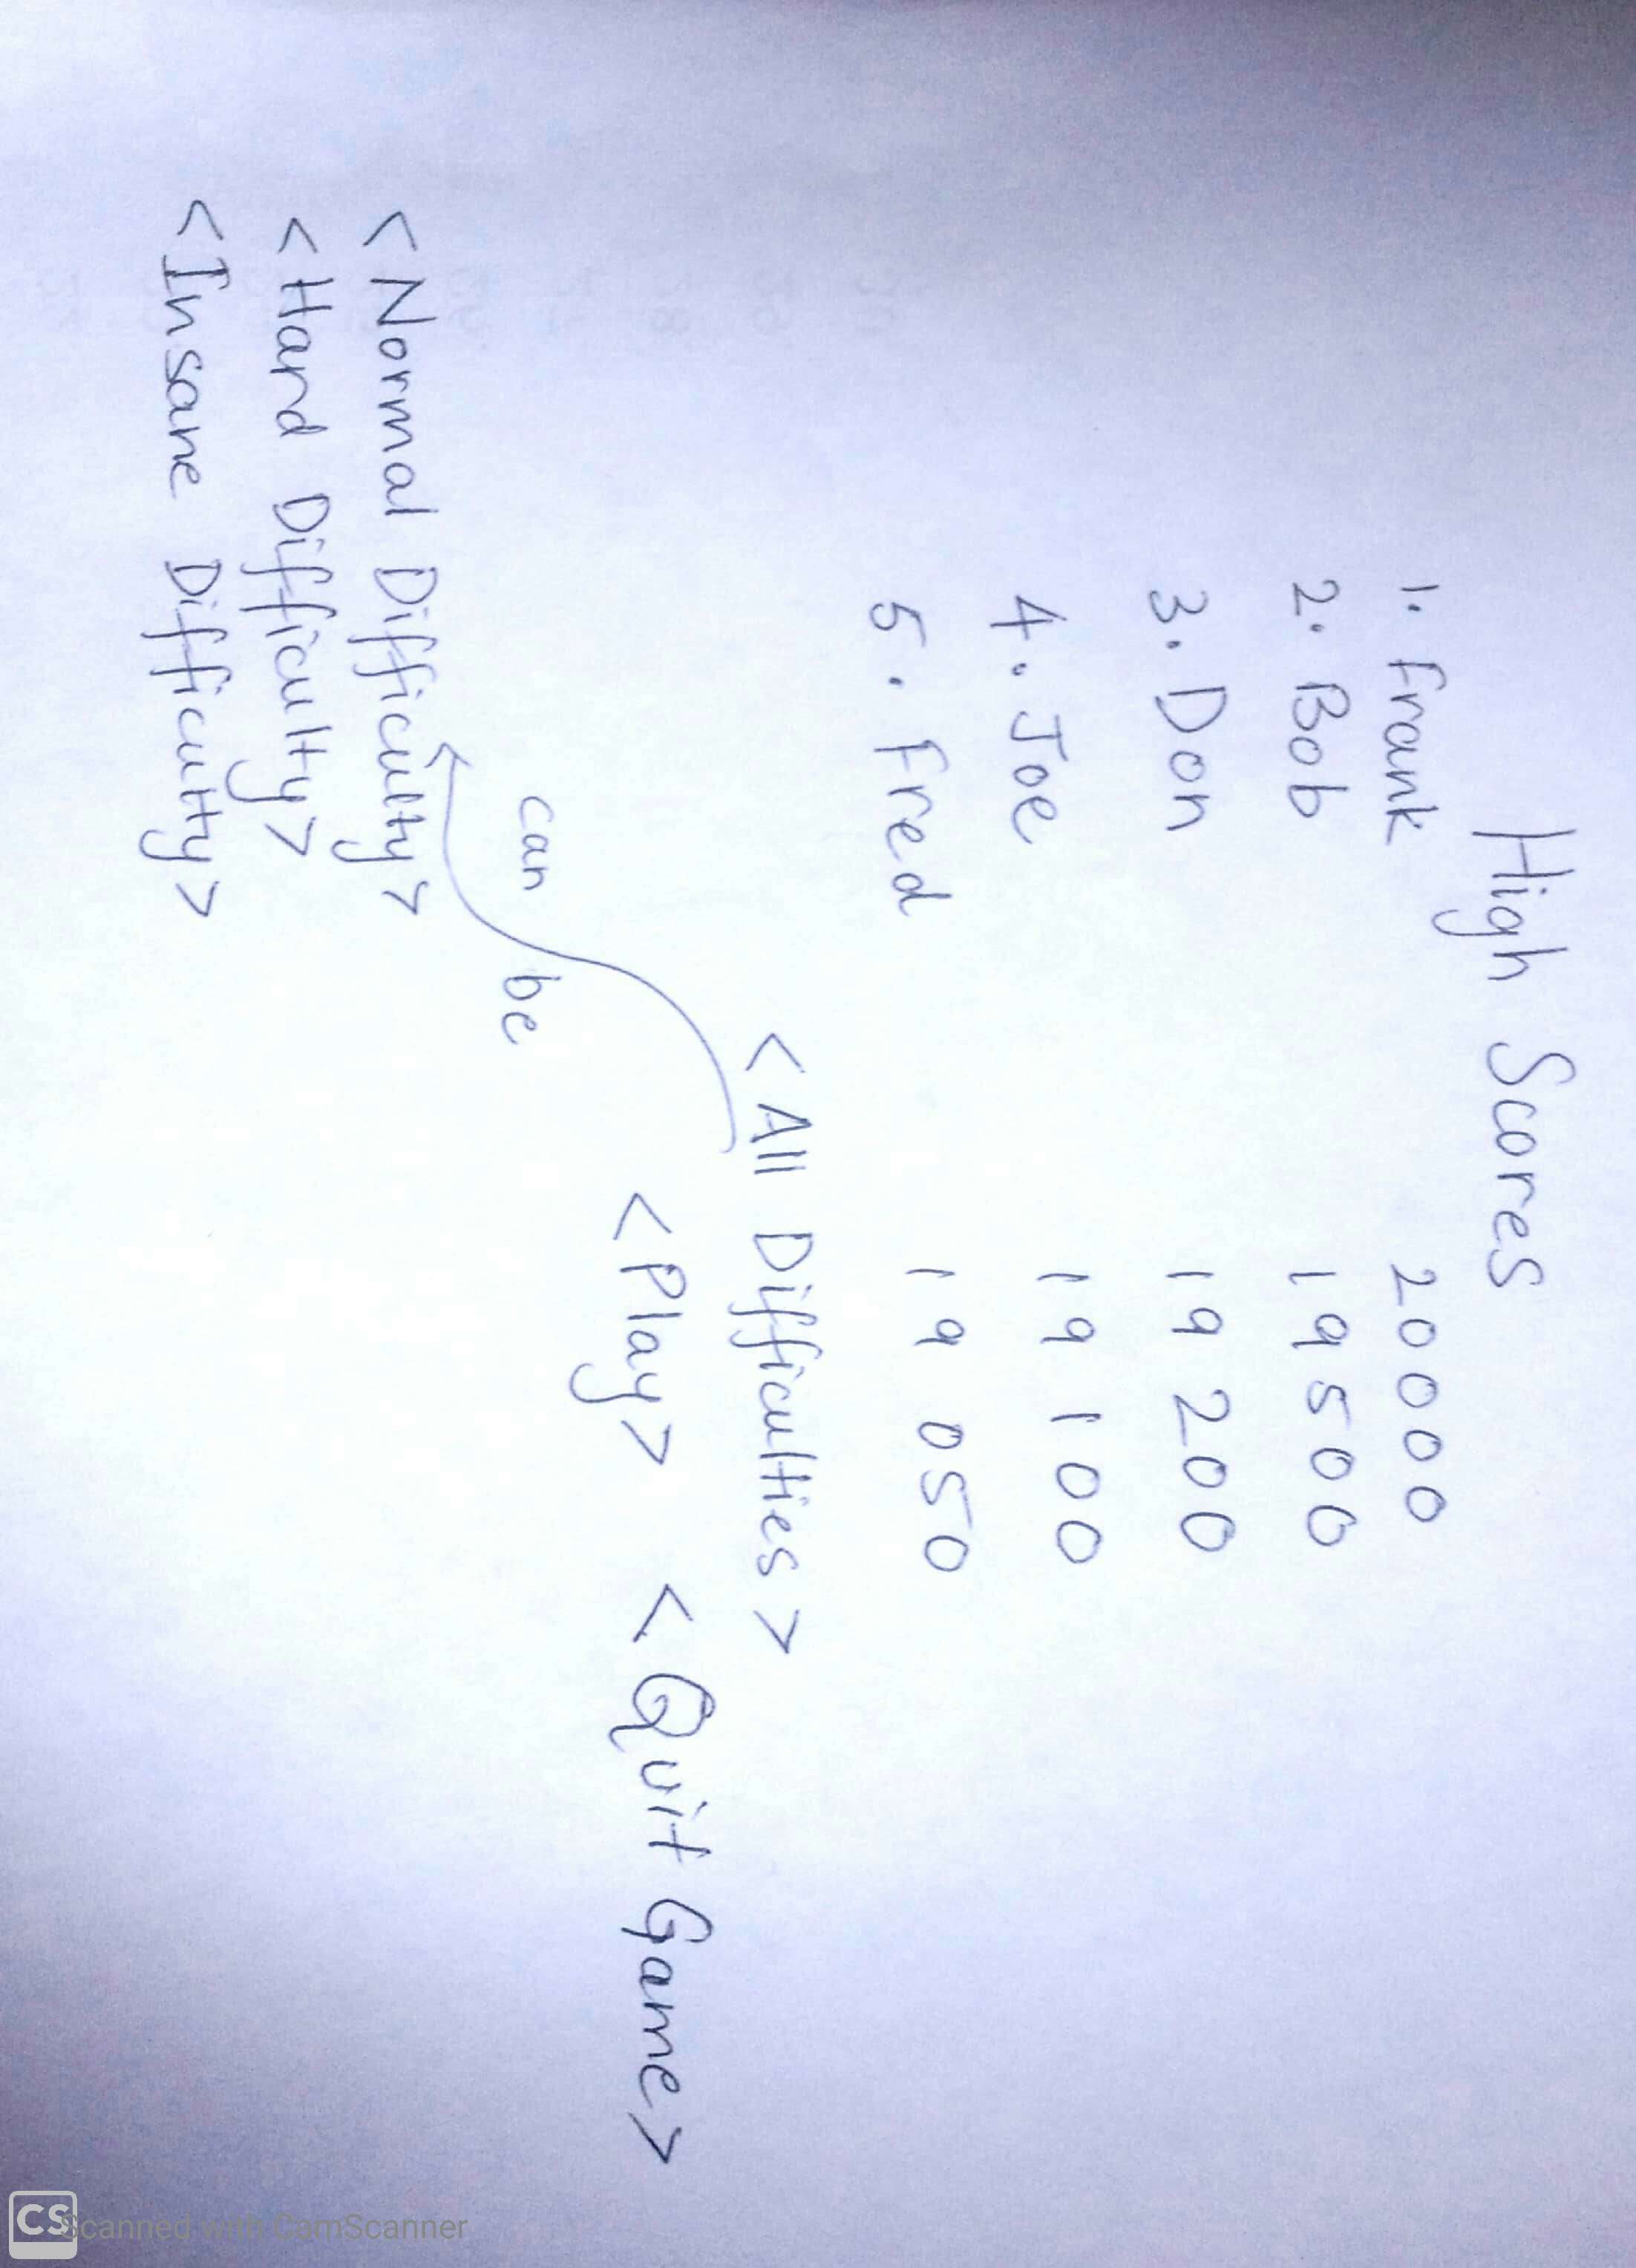 High Scores
1. Frank 20000
2. Bob 19500
3. Don 19 200
4. Joe 19 100
5. Fred 19 050
< All Difficulties >
<Play> < Quit Game>
can be
<Normal Difficulty>
<Hard Difficulty>
<Insane Difficulty>
Scanned with CamScanner
CS